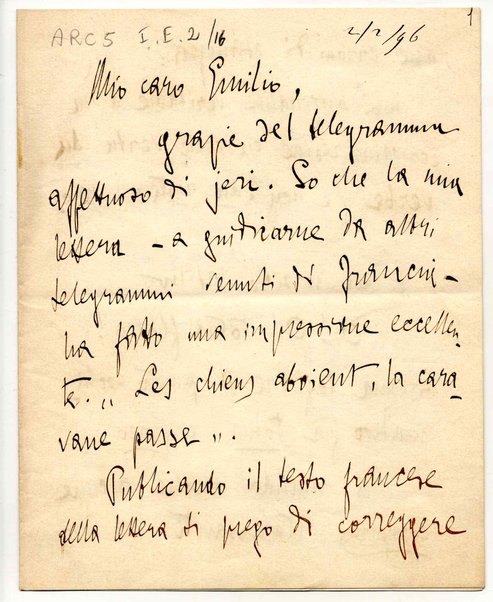 1
ARC 5 I.E.2/16
2/2/96
Mio caro Emilio,
grazie del telegramma
affettuoso di jeri. So che la mia
lettera – a giudicarne da altri
telegrammi venuti di Francia –
ha fatto una impressione eccellen-
te. „ Les chiens aboient, la cara-
vane passe „.
Publicando il testo francese
della lettera ti prego di correggere